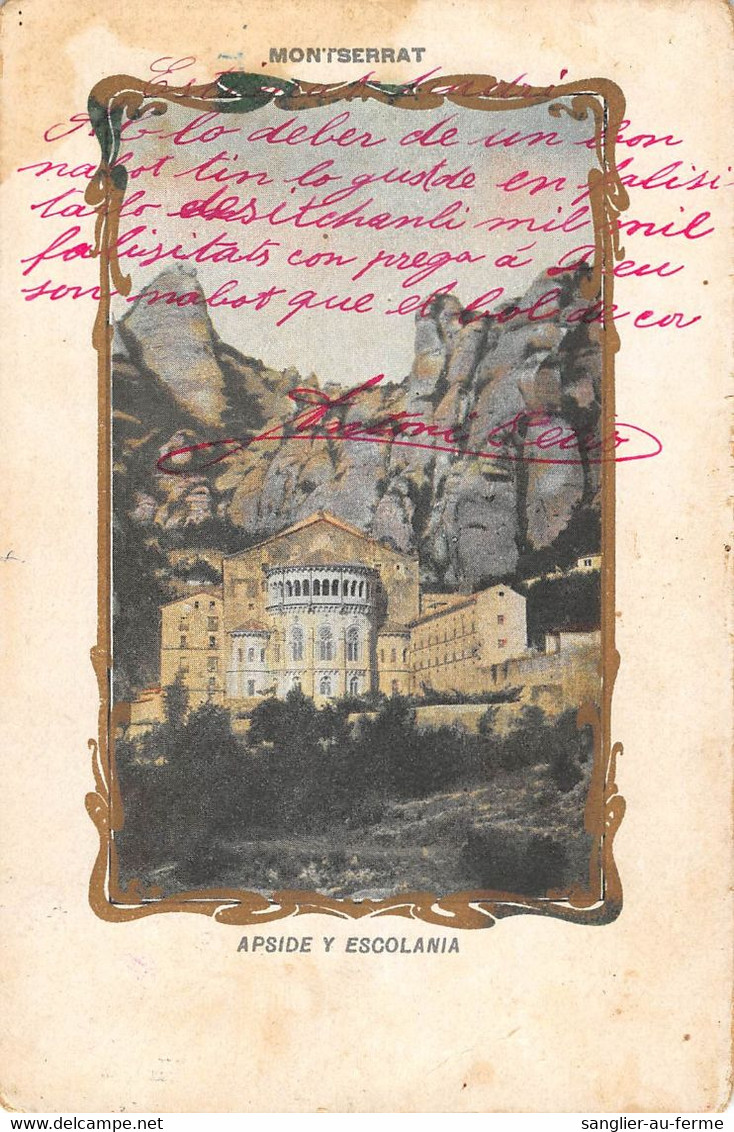 MONTSERRAT
Estimat
Ab lo deber de un bon
nabot tin lo gust de en falisi-
tarlo desitchanli mil mil
falisitats con prega á Deu
son nabot que el bol de cor
Antoni
APSIDE Y ESCOLANIA
delcampe.net
sanglier-au-ferme